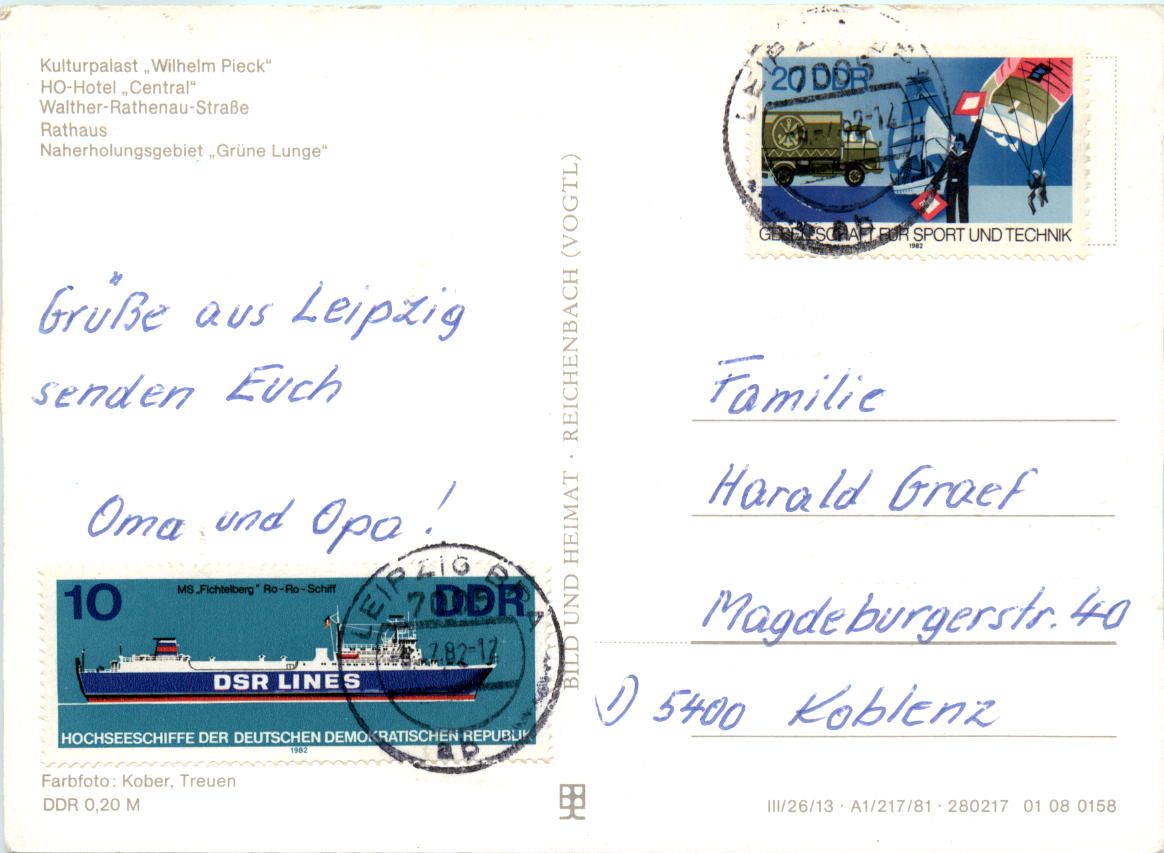 Kulturpalast „Wilhelm Pieck“
HO-Hotel „Central“
Walther-Rathenau-Straße
Rathaus
Naherholungsgebiet „Grüne Lunge“
Grüße aus Leipzig
senden Euch
Oma und Opa!
10
MS „Fichtelberg“ Ro-Ro-Schiff
DDR
DSR LINES
HOCHSEESCHIFFE DER DEUTSCHEN DEMOKRATISCHEN REPUBLIK
1982
LEIPZIG BPA
7005
7.82-12
ab
Farbfoto: Kober, Treuen
DDR 0,20 M
BILD UND HEIMAT · REICHENBACH (VOGTL)
20 DDR
GESELLSCHAFT FÜR SPORT UND TECHNIK
1982
LEIPZ
7005
82-12
ab
Familie
Harald Graef
Magdeburgerstr. 40
D 5400 Koblenz
III/26/13 · A1/217/81 · 280217 01 08 0158